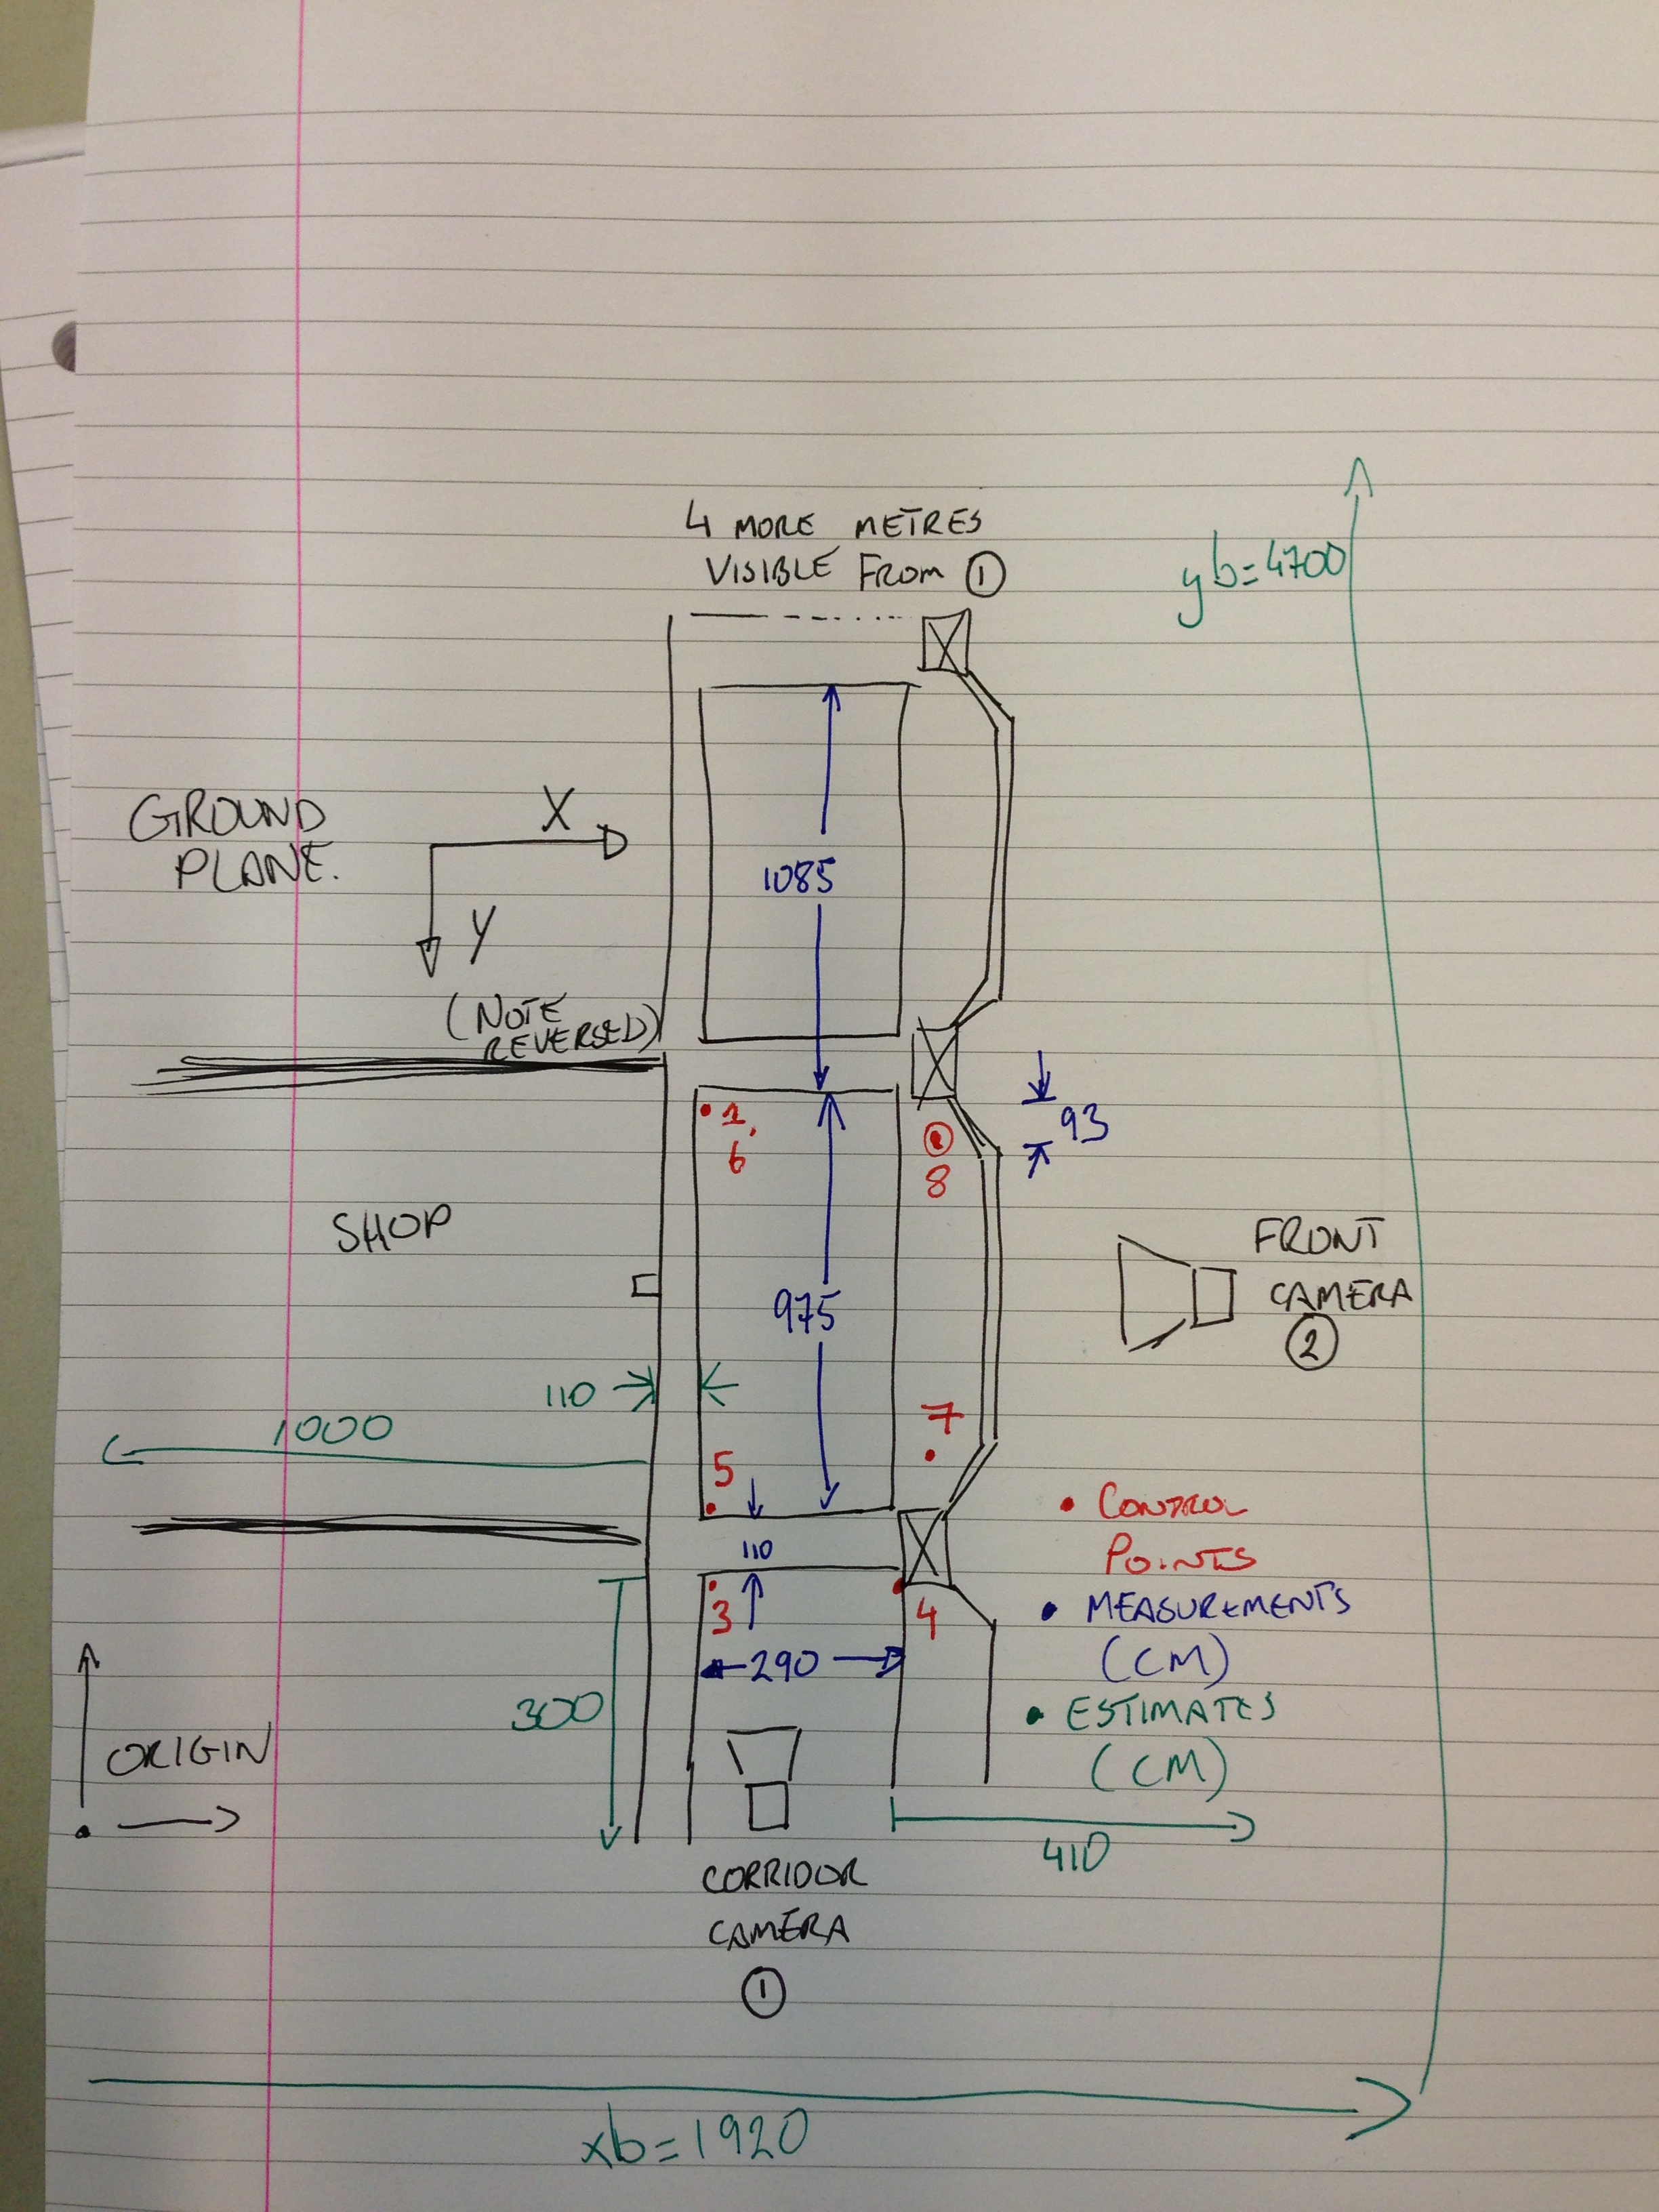 4 MORE METRES
VISIBLE FROM 1
yb=4700
GROUND
PLANE.
X
Y
(NOTE
REVERSED)
1085
1,
6
8
93
SHOP
975
FRONT
CAMERA
2
110
1000
7
5
110
3
4
290
300
• CONTROL
POINTS
• MEASUREMENTS
(CM)
• ESTIMATES
(CM)
ORIGIN
410
CORRIDOR
CAMERA
1
xb=1920